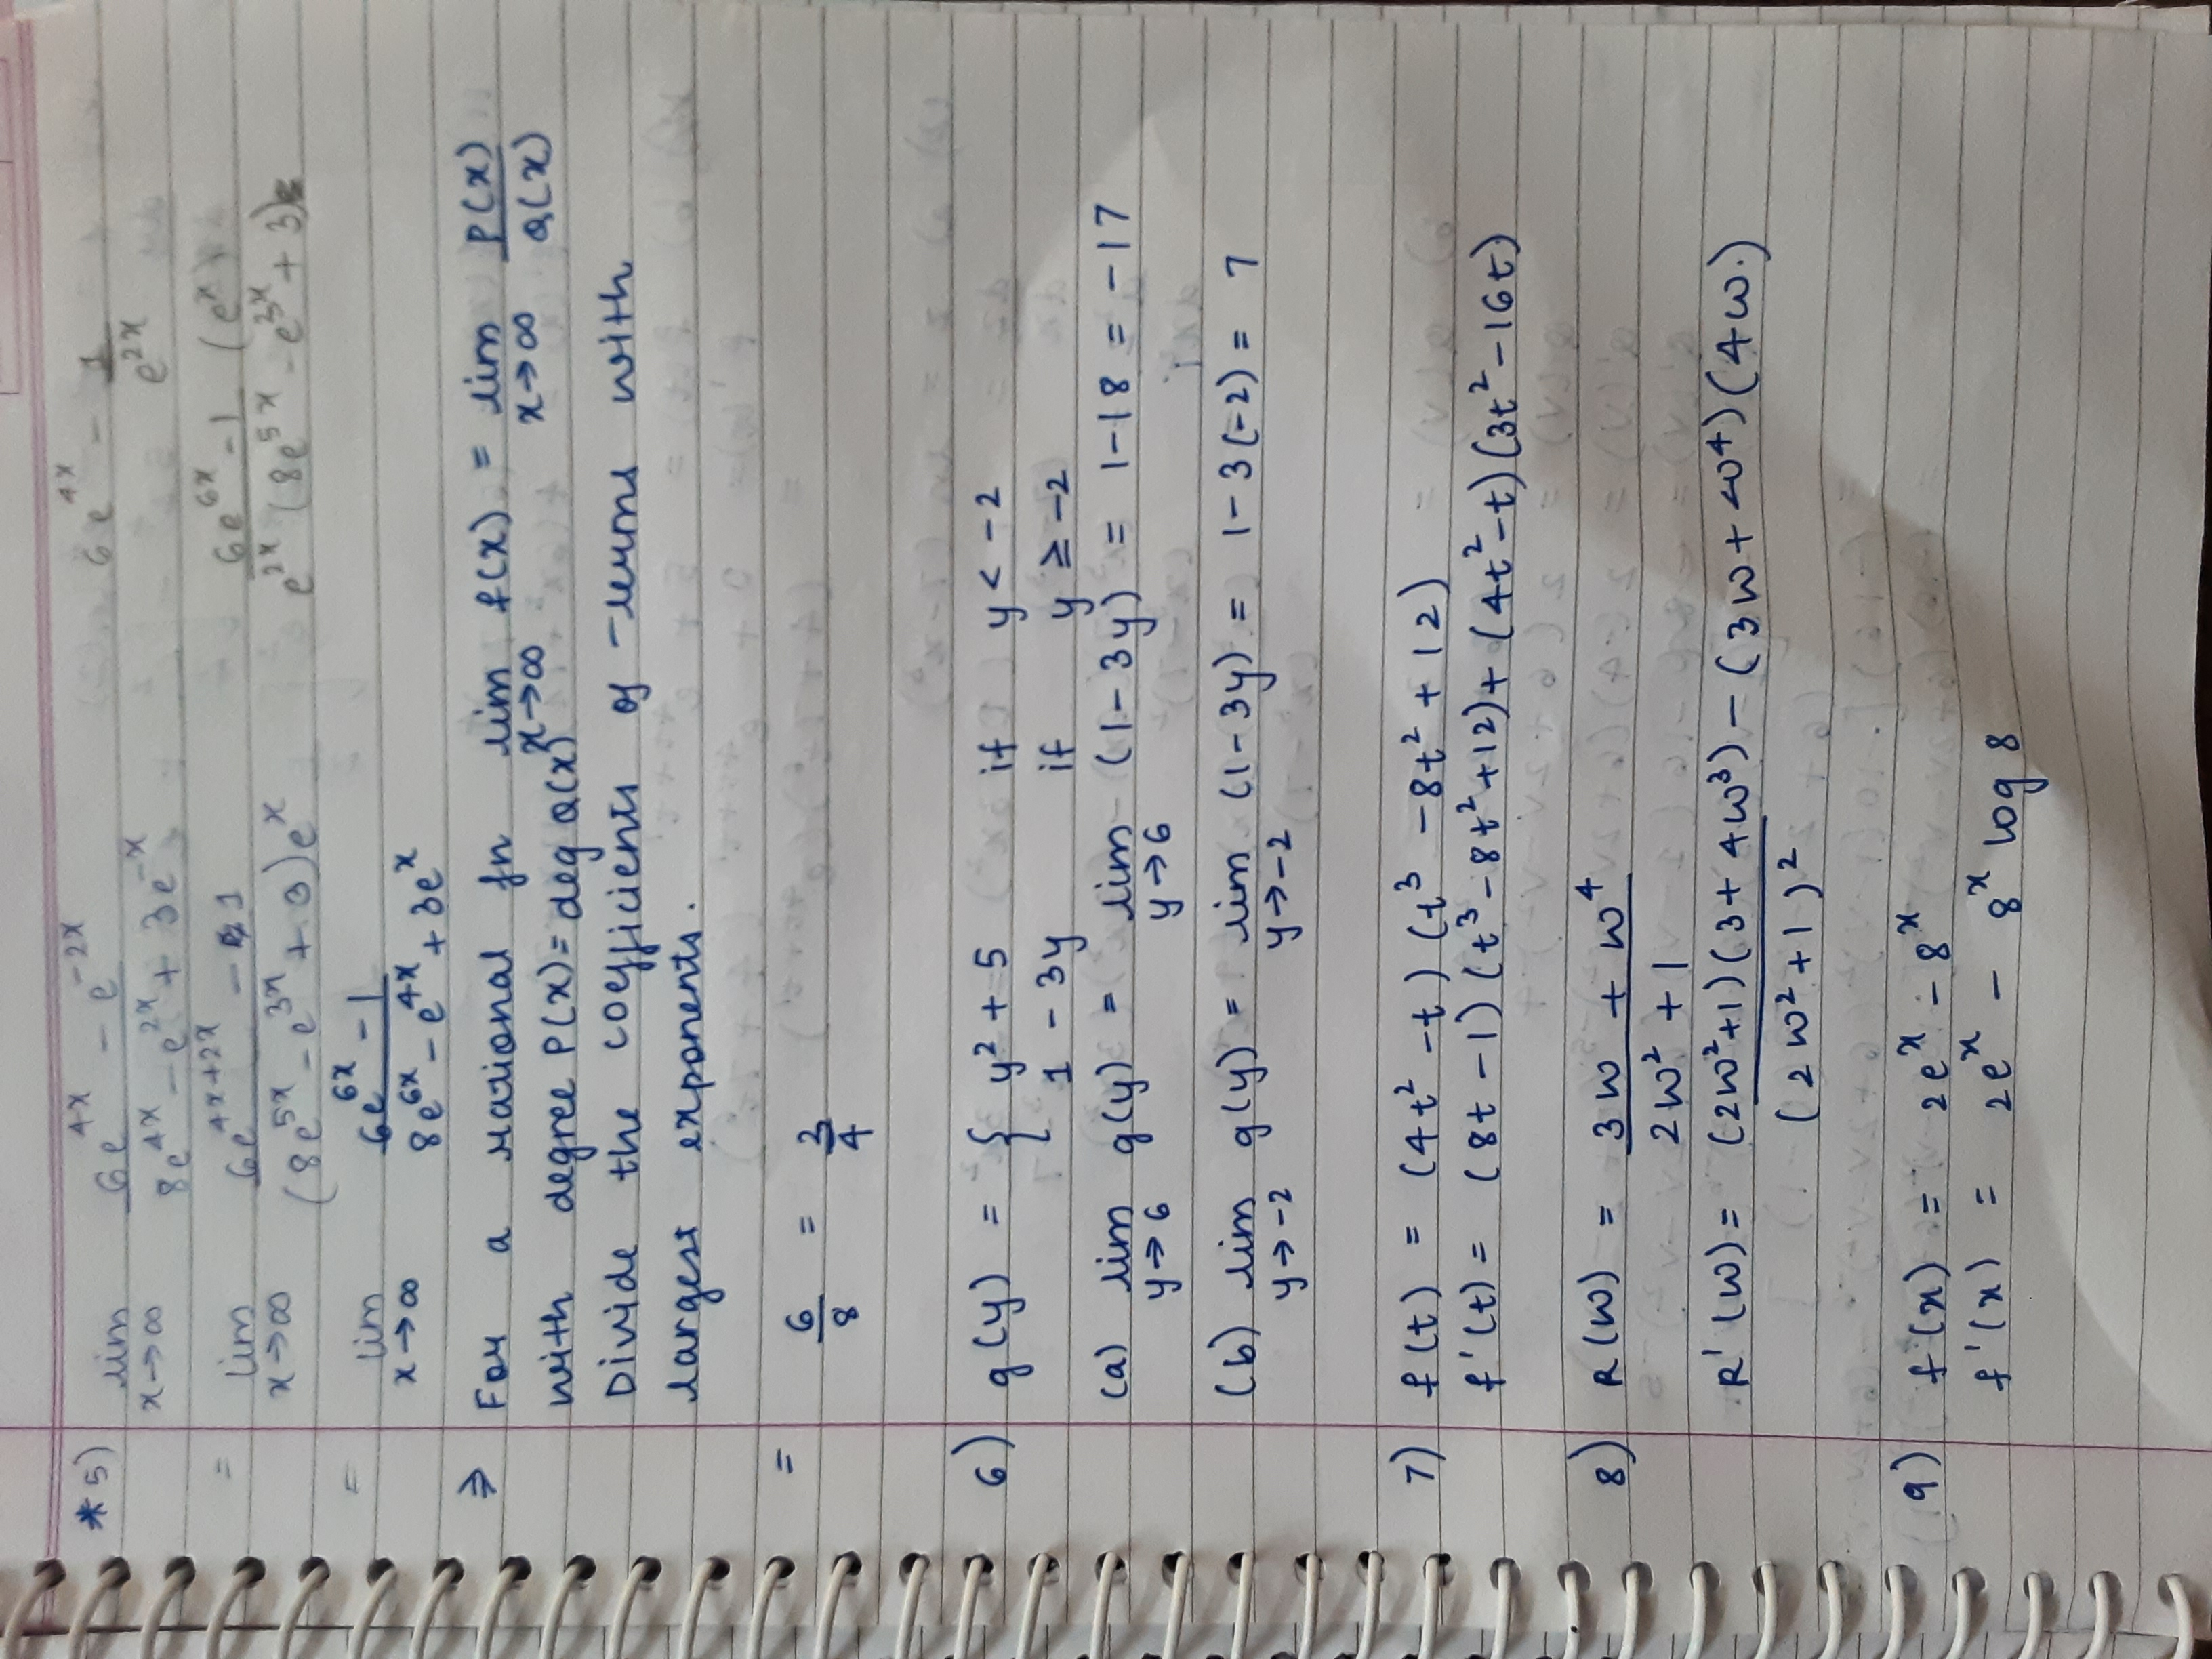 *5) lim x→∞ (6e^{4x} - e^{-2x}) / (8e^{4x} - e^{2x} + 3e^{-x}) 6e^{4x} - 1/e^{2x}
= lim x→∞ (6e^{4x+2x} - 1) / ((8e^{5x} - e^{3x} + 3)e^x) (6e^{6x} - 1 (e^x)) / (e^{2x} (8e^{5x} - e^{3x} + 3))
= lim x→∞ (6e^{6x} - 1) / (8e^{6x} - e^{4x} + 3e^x)
⇒ For a rational fn lim x→∞ f(x) = lim x→∞ P(x)/Q(x)
with degree P(x) = deg Q(x)
Divide the coefficients of terms with
largest exponents.
= 6/8 = 3/4
6) g(y) = { y² + 5 if y < -2
1 - 3y if y ≥ -2
(a) lim y→6 g(y) = lim y→6 (1 - 3y) = 1 - 18 = -17
(b) lim y→-2 g(y) = lim y→-2 (1 - 3y) = 1 - 3(-2) = 7
7) f(t) = (4t² - t) (t³ - 8t² + 12)
f'(t) = (8t - 1) (t³ - 8t² + 12) + (4t² - t)(3t² - 16t)
8) R(w) = (3w + w⁴) / (2w² + 1)
R'(w) = ((2w² + 1)(3 + 4w³) - (3w + w⁴)(4w)) / (2w² + 1)²
9) f(x) = 2e^x - 8^x
f'(x) = 2e^x - 8^x log 8